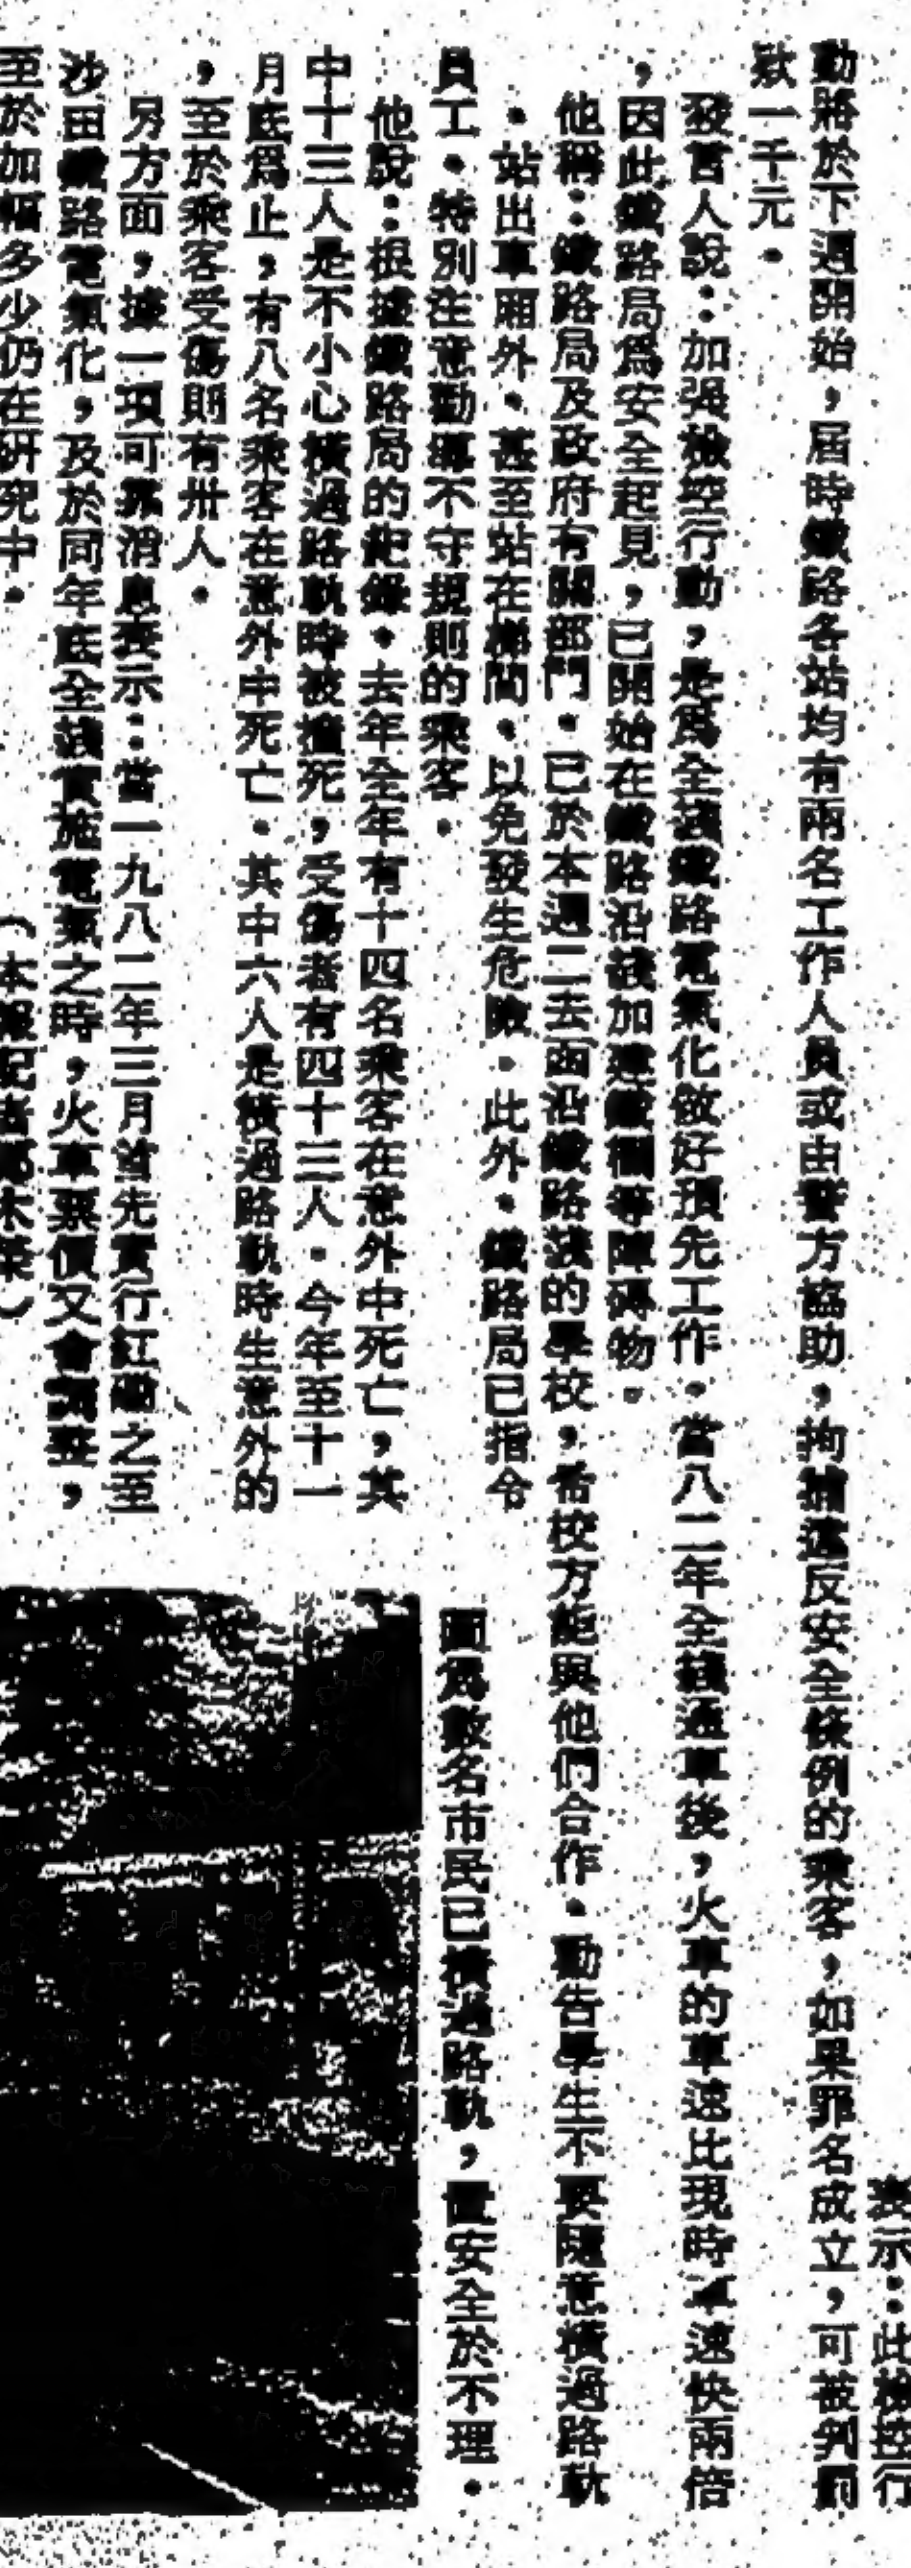 表示：此檢控行
動將於下週開始，屆時鐵路各站均有兩名工作人員或由警方協助，拘捕違反安全條例的乘客，如果罪名成立，可被判罰
欵一千元．
發言人說：加强檢控行動，是爲全綫鐵路電氣化做好預先工作．當八二年全綫通車後，火車的車速比現時車速快兩倍
，因此鐵路局爲安全起見，已開始在鐵路沿綫加建鐵欄等障碍物．
他稱：鐵路局及政府有關部門．已於本週二去函沿鐵路綫的學校，希校方能與他們合作．勸告學生不要隨意橫過路軌
．站出車廂外．甚至站在梯間．以免發生危險．此外．鐵路局已指令
員工．特別注意勸導不守規則的乘客．
他說：根據鐵路局的紀錄．去年全年有十四名乘客在意外中死亡，其
中十三人是不小心橫過路軌時被撞死，受傷者有四十三人．今年至十一
月底爲止，有八名乘客在意外中死亡．其中六人是橫過路軌時生意外的
，至於乘客受傷則有卅人．
另方面，據一項可靠消息表示：當一九八二年三月首先實行紅磡之至
沙田鐵路電氣化，及於同年底全綫實施電氣之時，火車票價又會調整，
至於加幅多少仍在研究中．（本報記者 木榮）
圖爲數名市民已橫過路軌，置安全於不理．